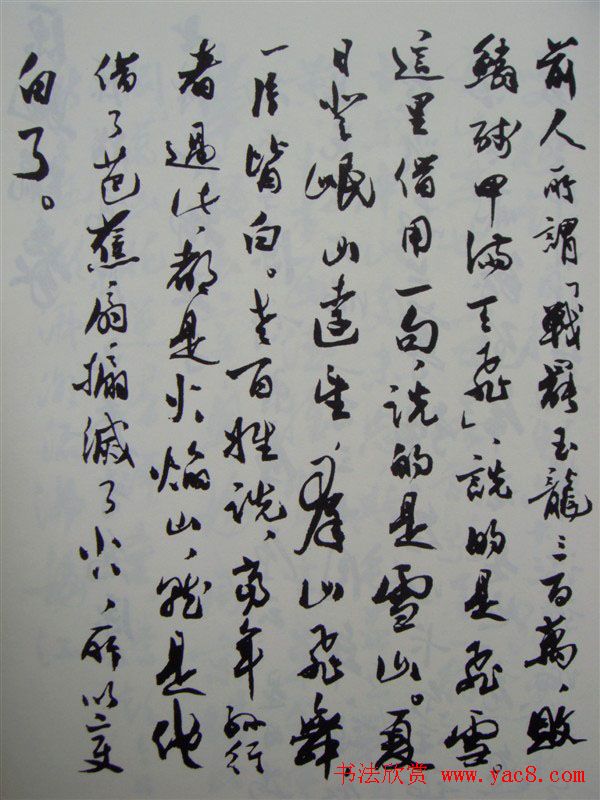 前人所謂「戰罷玉龍三百萬、敗
鱗殘甲滿天飛」、說的是飛雪。
這里借用一句、說的是雪山。夏
日登岷山遠望、羣山飛舞
一片皆白。老百姓說、當年孫行
者過此、都是火焰山、就是他
借了芭蕉扇搧滅了火、所以變
白了。
书法欣赏 www.yac8.com